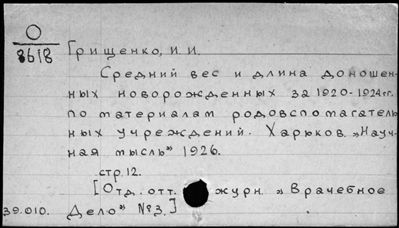 О
8618
Грищенко, И. И.
Средний вес и длина доношен-
ных новорожденных за 1920-1924 гг.
по материалам родовспомагатель
ных учреждений. Харьков. "Науч-
ная мысль" 1926.
стр. 12.
[Отд. отт. журн. "Врачебное
39.010. Дело" №3.]